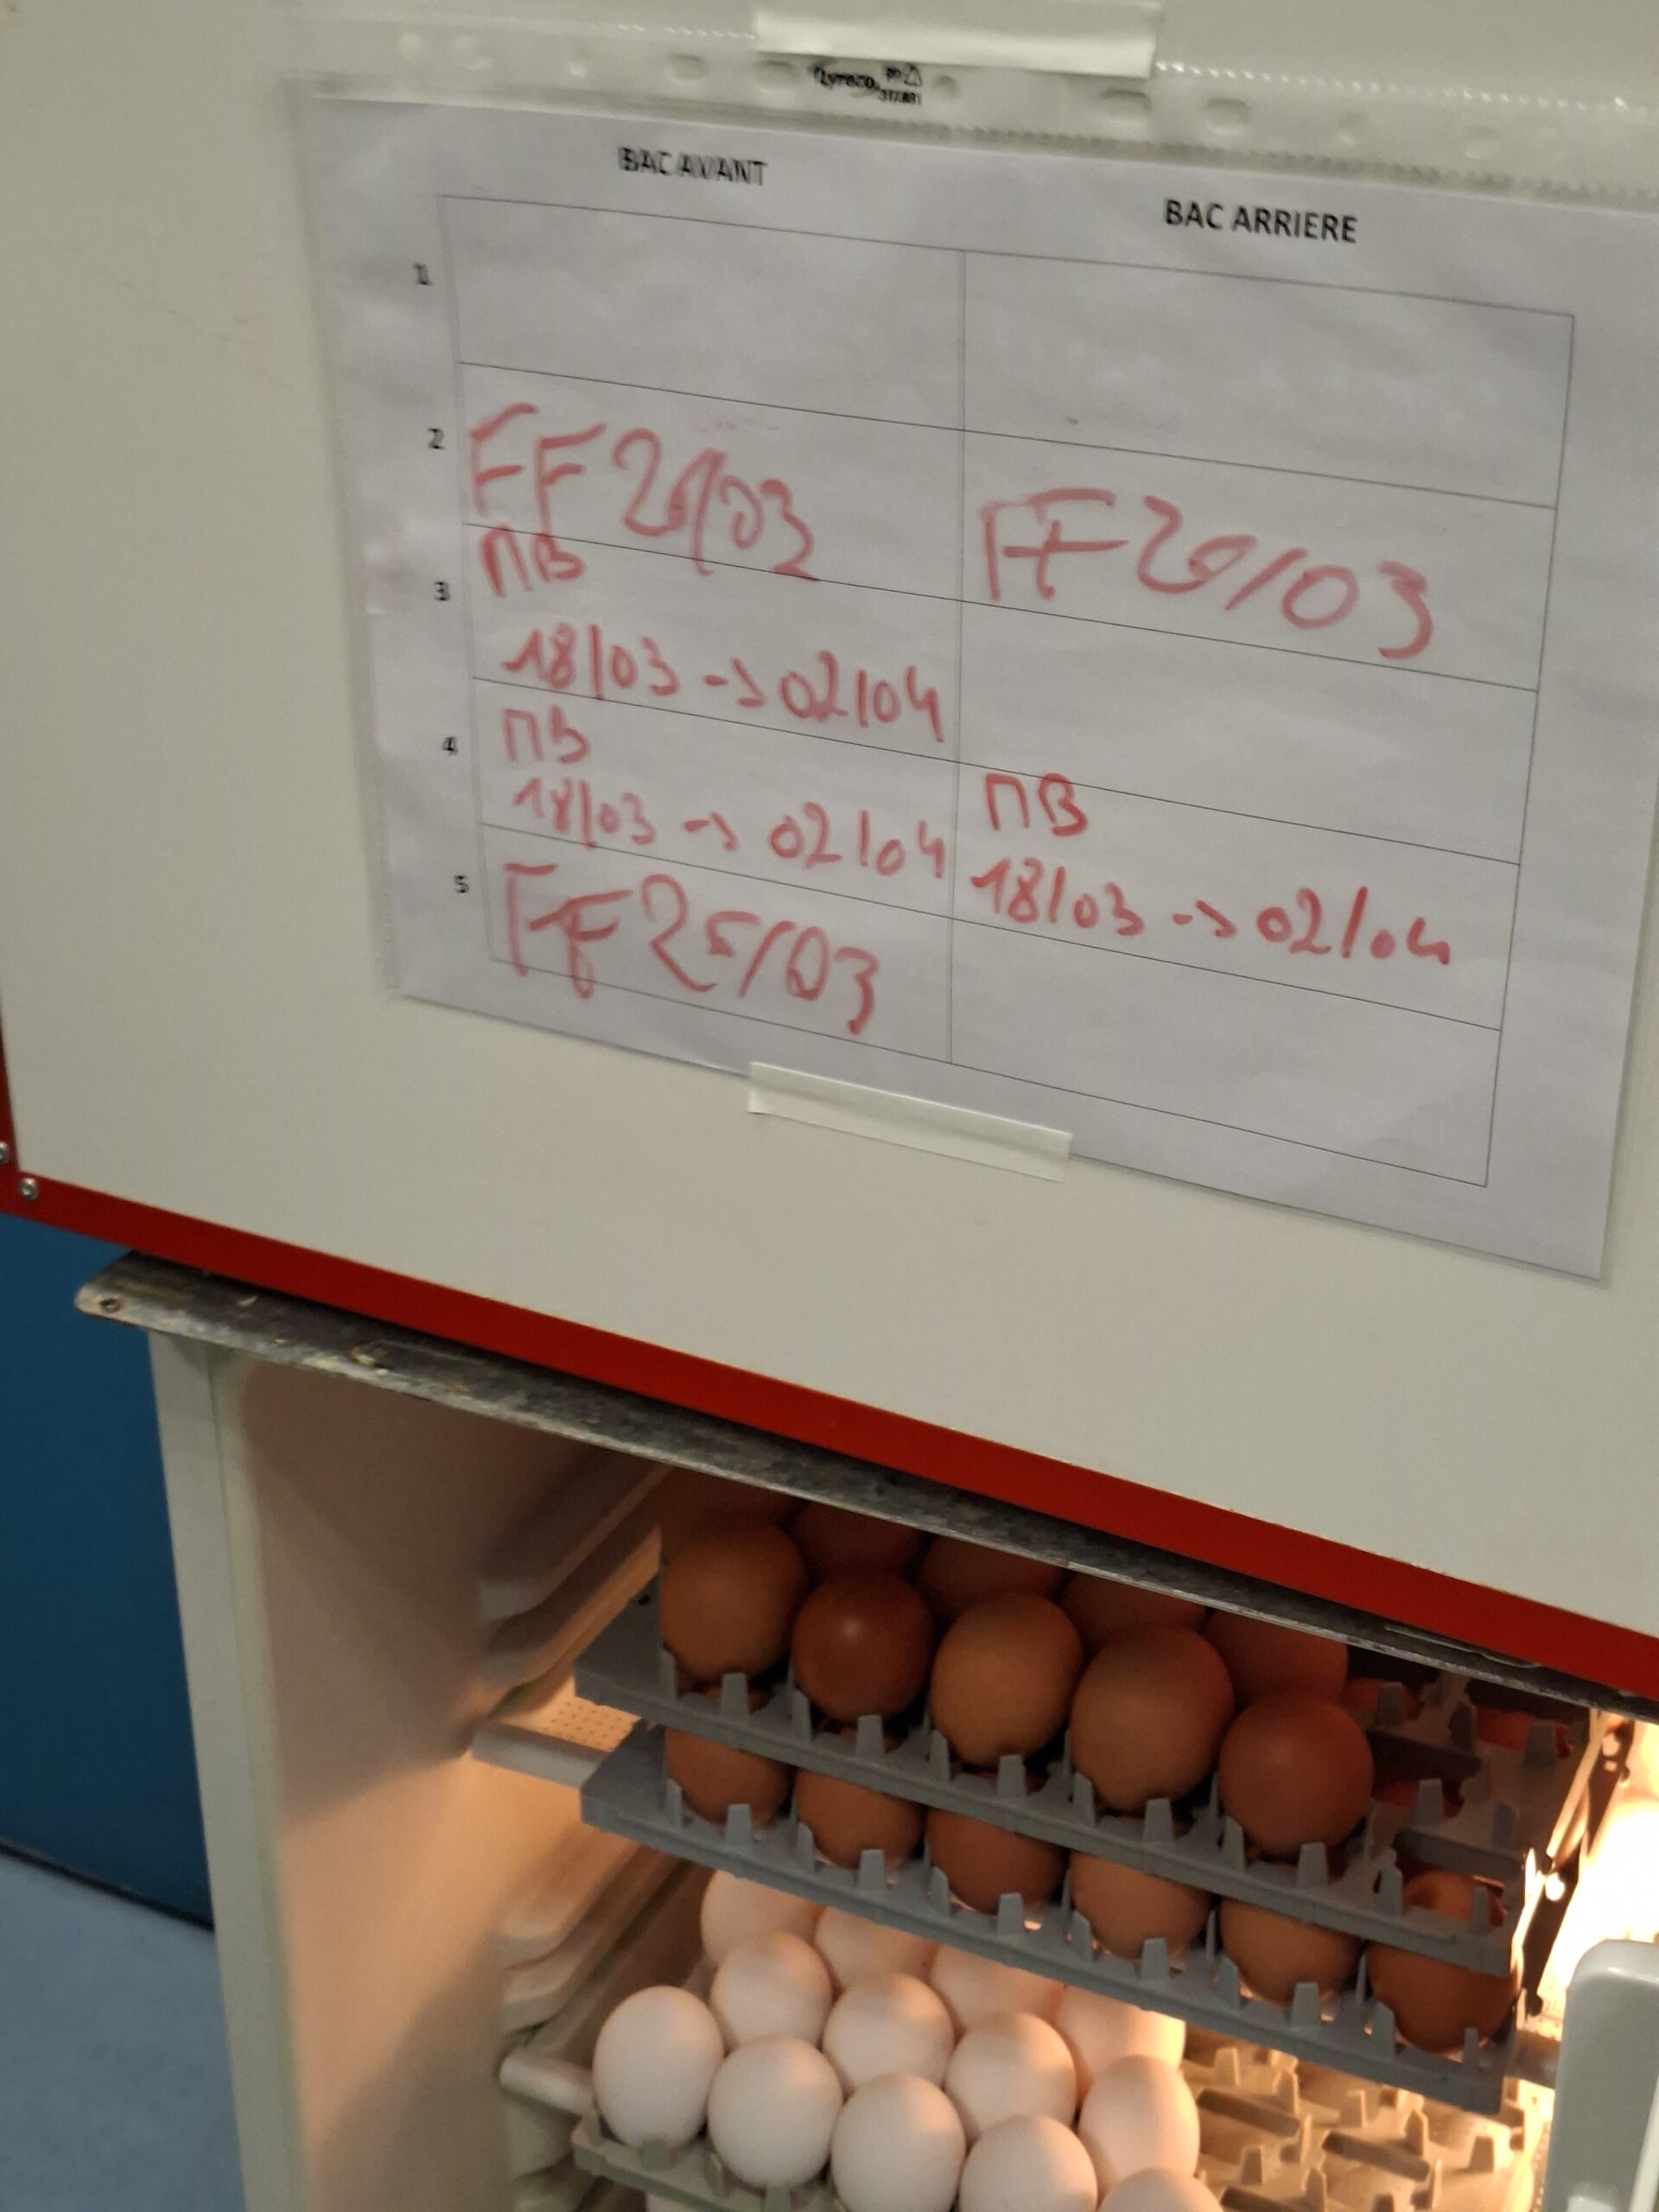 Lyreco
BAC AVANT
BAC ARRIERE
1
2
FF 03
FF 20/03
3
ΠB
18/03 -> 02/04
4
ΠB
18/03 -> 02/04
ΠB
18/03 -> 02/04
5
FF 25/03